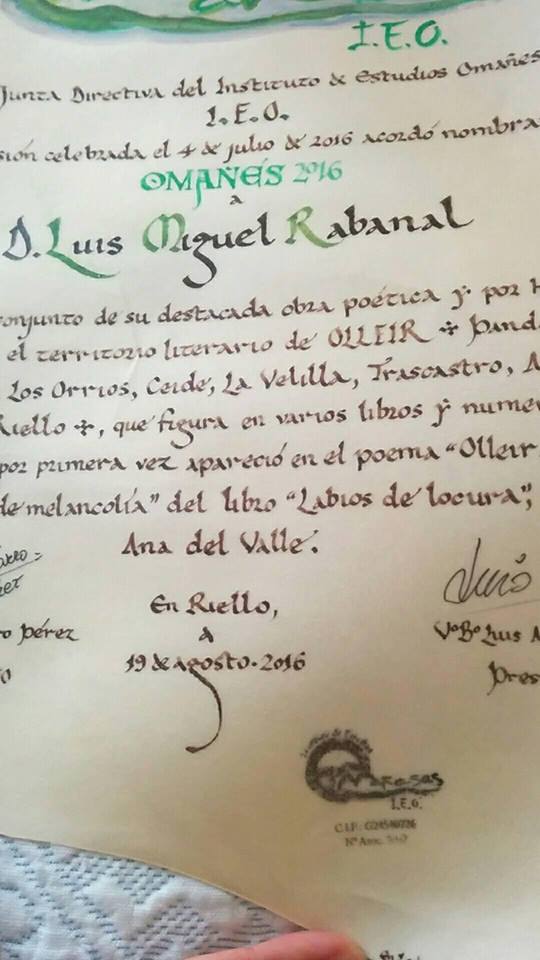 I.E.O.
Junta Directiva del Instituto de Estudios Omañeses
I.E.O.
sión celebrada el 4 de julio de 2016 acordó nombra
OMAÑÉS 2016
a
D. Luis Miguel Rabanal
conjunto de su destacada obra poética y por h
el territorio literario de OLLEIR Pand
Los Orrios, Ceide, La Velilla, Trascastro, A
Riello, que figura en varios libros y nume
por primera vez apareció en el poema "Olleir
de melancolía" del libro "Labios de locura",
Ana del Valle.
En Riello,
a
19 de agosto - 2016
ro Pérez
VºBº Luis
Pres
I.E.O.
C.I.F.:
Nº Asoc.